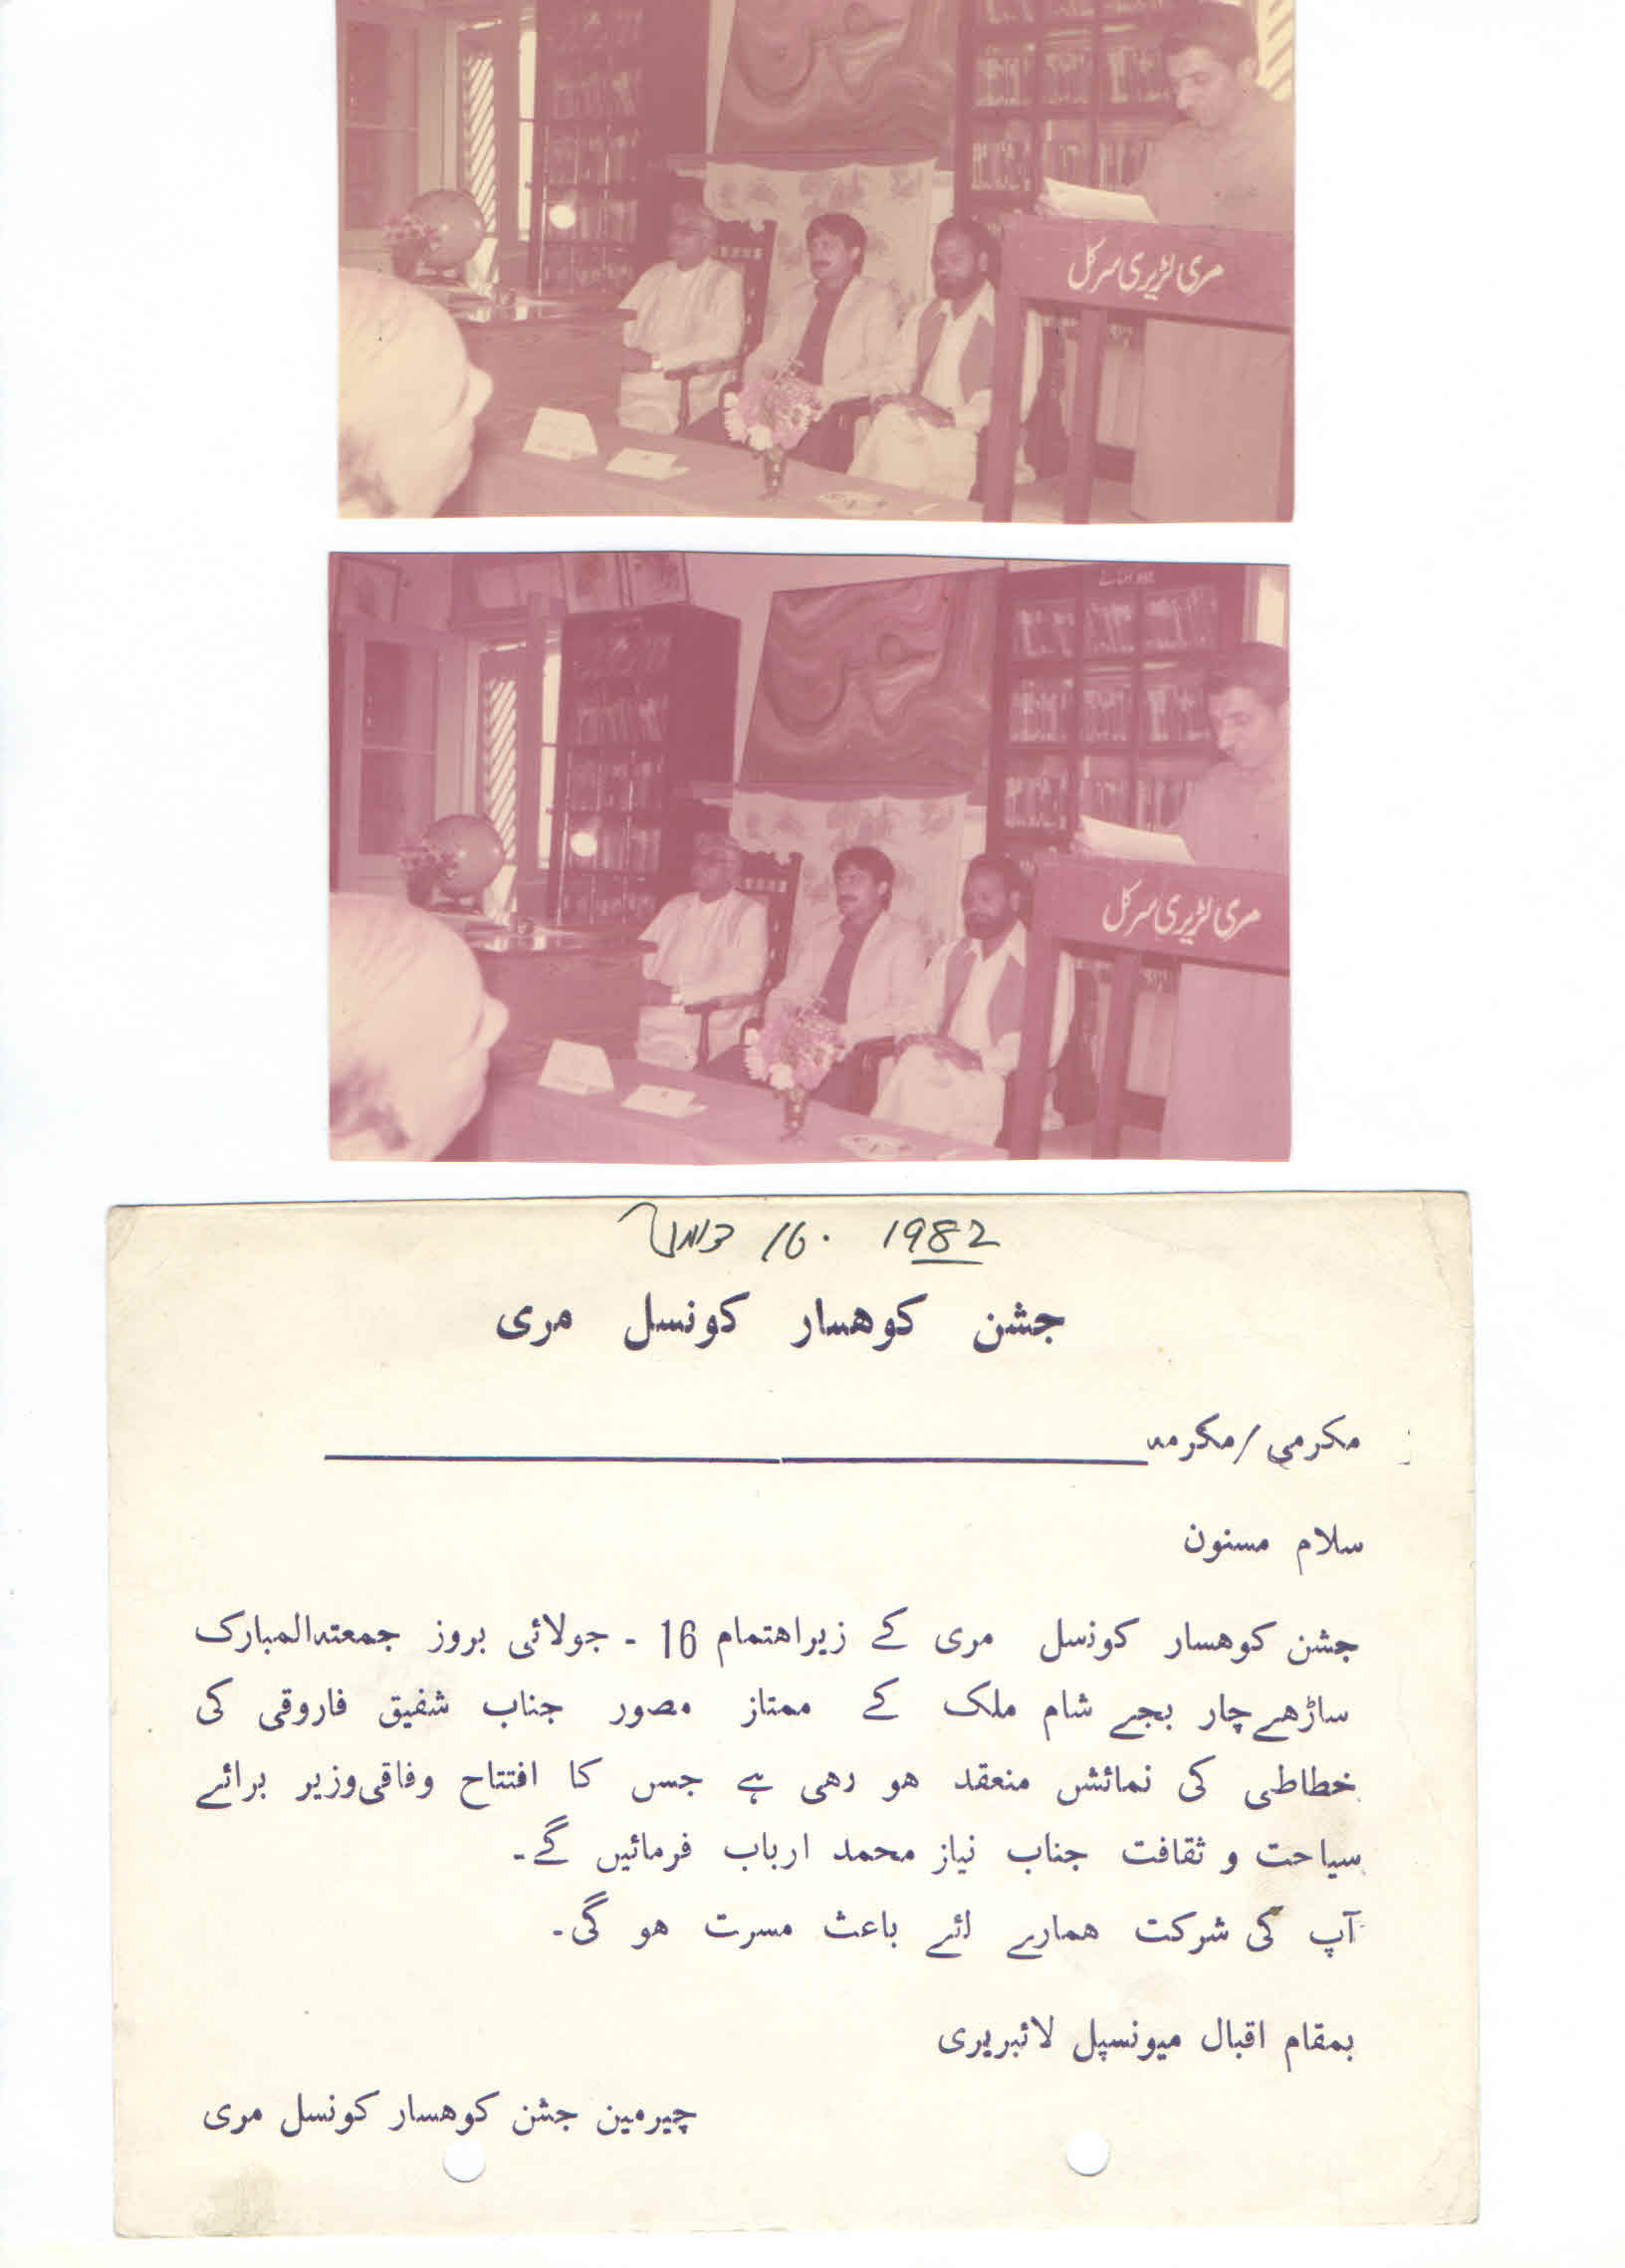 مری لٹریری سرکل
مری لٹریری سرکل
16. 1982
جشن کوهسار کونسل مری
مکرمی/مکرمہ
سلام مسنون
جشن کوهسار کونسل مری کے زیراهتمام 16 - جولائی بروز جمعتہ المبارک
ساڑهے چار بجے شام ملک کے ممتاز مصور جناب شفیق فاروقی کی
خطاطی کی نمائش منعقد هو رهی ہے جس کا افتتاح وفاقی وزیر برائے
سیاحت و ثقافت جناب نیاز محمد ارباب فرمائیں گے۔
آپ کی شرکت همارے لئے باعث مسرت هو گی۔
بمقام اقبال میونسپل لائبریری
چیرمین جشن کوهسار کونسل مری